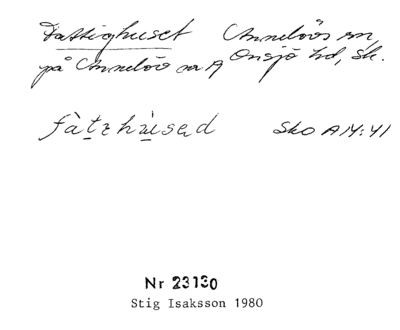 Fattighuset Annelövs sn,
på Annelövs nr 9 Onsjö hd, Sk.
fàtzhùsed Sko A14:41
Nr 23130
Stig Isaksson 1980